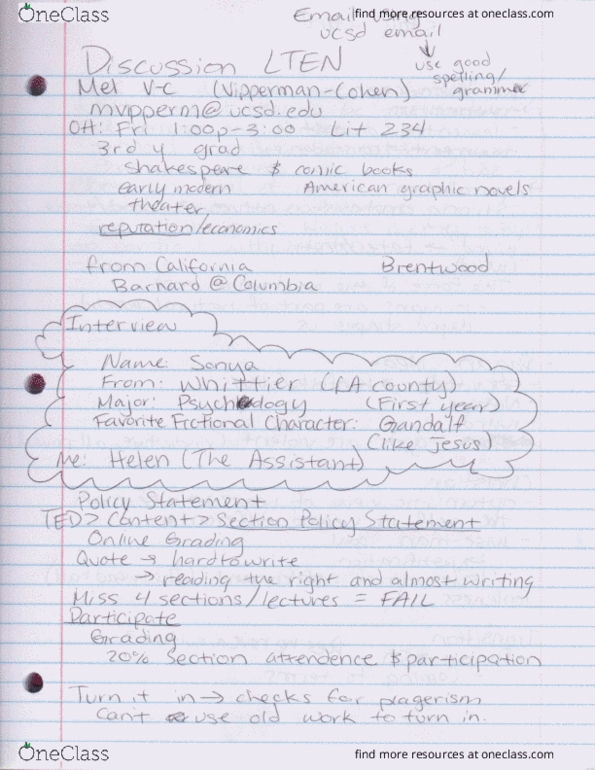 OneClass
find more resources at oneclass.com
Email using
ucsd email
use good
spelling/
grammer
Discussion LTEN
Mel V-C (Vipperman-Cohen)
mvipperm@ucsd.edu
OH: Fri 1:00p-3:00 Lit 234
3rd y grad
Shakespere & comic books
early modern American graphic novels
theater,
reputation/economics
from California Brentwood
Barnard @ Columbia
Interview
Name: Sonya
From: Whittier (LA county)
Major: Psychology (First year)
Favorite Frctional Character: Gandalf
(like Jesus)
Me: Helen (The Assistant)
Policy Statement
TED > Content > Section Policy Statement
Online Grading
Quote → hard to write
→ reading the right and almost writing
Miss 4 sections/lectures = FAIL
Participate
Grading
20% Section attendence & participation
Turn it in → checks for plagerism
Can't use old work to turn in.
OneClass
find more resources at oneclass.com